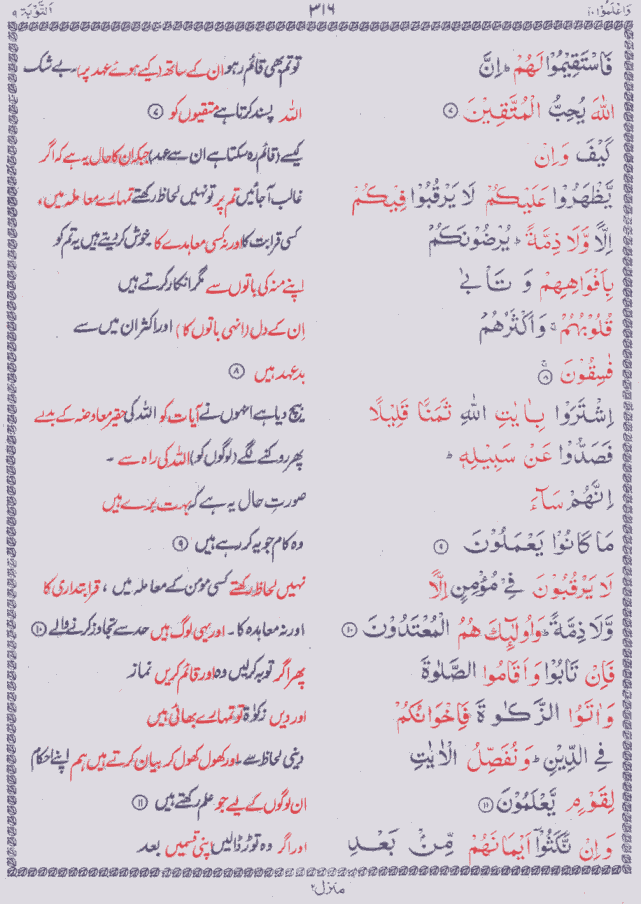 وَاعْلَمُوْٓا ١٠ ٣١٦ اَلتَّوْبَة ٩
فَاسْتَقِيْمُوْا لَهُمْ ؕ اِنَّ تو تم بھی قائم رہو ان کے ساتھ (کیے ہوئے عہد پر)۔ بے شک
اللّٰهَ يُحِبُّ الْمُتَّقِيْنَ ۷ اللہ پسند کرتا ہے متقیوں کو ۷
كَيْفَ وَاِنْ کیسے (قائم رہ سکتا ہے ان سے عہد) جبکہ ان کا حال یہ ہے کہ اگر
يَّظْهَرُوْا عَلَيْكُمْ لَا يَرْقُبُوْا فِيْكُمْ غالب آجائیں تم پر تو نہیں لحاظ رکھتے تمہارے معاملہ میں،
اِلًّا وَّلَا ذِمَّةً ؕ يُرْضُوْنَكُمْ کسی قرابت کا اور نہ کسی معاہدے کا خوش کردیتے ہیں یہ تم کو
بِاَفْوَاهِهِمْ وَ تَاْبٰى اپنے منہ کی باتوں سے مگر انکار کرتے ہیں
قُلُوْبُهُمْ ۚ وَاَكْثَرُهُمْ ان کے دل (انہی باتوں کا) اور اکثر ان میں سے
فٰسِقُوْنَ ۸ بدعہد ہیں ۸
اِشْتَرَوْا بِاٰيٰتِ اللّٰهِ ثَمَنًا قَلِيْلًا بیچ دیا ہے انہوں نے آیات کو اللہ کی حقیر معاوضہ کے بدلے
فَصَدُّوْا عَنْ سَبِيْلِهٖ ؕ پھر روکنے لگے (لوگوں کو) اللہ کی راہ سے ۔
اِنَّهُمْ سَآءَ صورتِ حال یہ ہے کہ بہت برے ہیں
مَا كَانُوْا يَعْمَلُوْنَ ۹ وہ کام جو یہ کر رہے ہیں ۹
لَا يَرْقُبُوْنَ فِيْ مُؤْمِنٍ اِلًّا نہیں لحاظ رکھتے کسی مومن کے معاملہ میں ، قرابتداری کا
وَّلَا ذِمَّةً ؕ وَاُولٰٓئِكَ هُمُ الْمُعْتَدُوْنَ ۱۰ اور نہ معاہدہ کا۔ اور یہی لوگ ہیں حد سے تجاوز کرنے والے ۱۰
فَاِنْ تَابُوْا وَاَقَامُوا الصَّلٰوةَ پھر اگر توبہ کرلیں وہ اور قائم کریں نماز
وَاٰتَوُا الزَّكٰوةَ فَاِخْوَانُكُمْ اور دیں زکوٰۃ تو تمہارے بھائی ہیں
فِي الدِّيْنِ ؕ وَنُفَصِّلُ الْاٰيٰتِ دینی لحاظ سے۔ اور کھول کھول کر بیان کرتے ہیں ہم اپنے احکام
لِقَوْمٍ يَّعْلَمُوْنَ ۱۱ ان لوگوں کے لیے جو علم رکھتے ہیں ۱۱
وَاِنْ نَّكَثُوْٓا اَيْمَانَهُمْ مِّنْۢ بَعْدِ اور اگر وہ توڑ ڈالیں اپنی قسمیں بعد
منزل۲